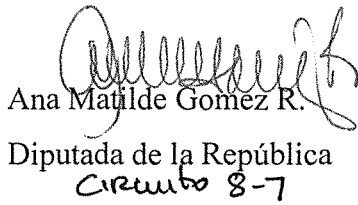 Ana Matilde Gomez R.
Diputada de la República
CIRCUITO 8-7